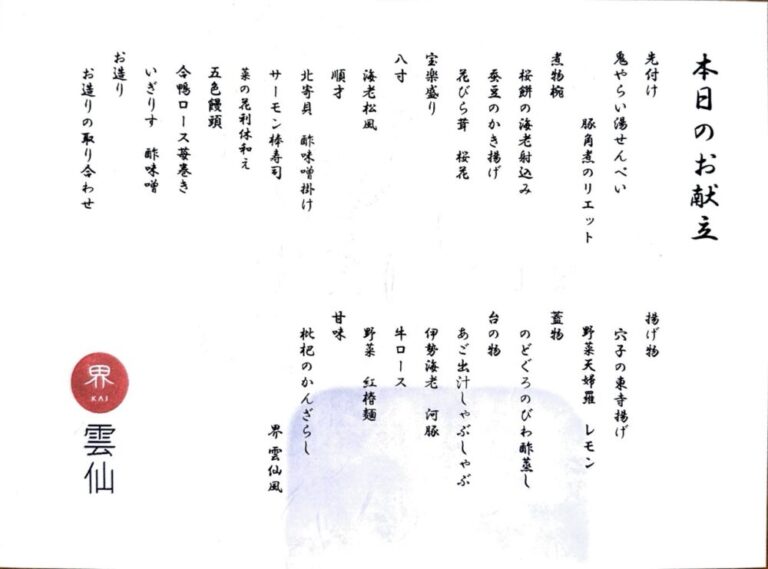 本日のお献立
先付け
鬼やらい湯せんべい
豚角煮のリエット
煮物椀
桜餅の海老射込み
蚕豆のかき揚げ
花びら茸 桜花
宝楽盛り
八寸
海老松風
順才
北寄貝 酢味噌掛け
サーモン棒寿司
菜の花利休和え
五色饅頭
合鴨ロース苺巻き
いぎりす 酢味噌
お造り
お造りの取り合わせ
揚げ物
穴子の東寺揚げ
野菜天婦羅 レモン
蓋物
のどぐろのびわ酢蒸し
台の物
あご出汁しゃぶしゃぶ
伊勢海老 河豚
牛ロース
野菜 紅椿麺
甘味
枇杷のかんざらし
界 雲仙風
界
KAI
雲仙